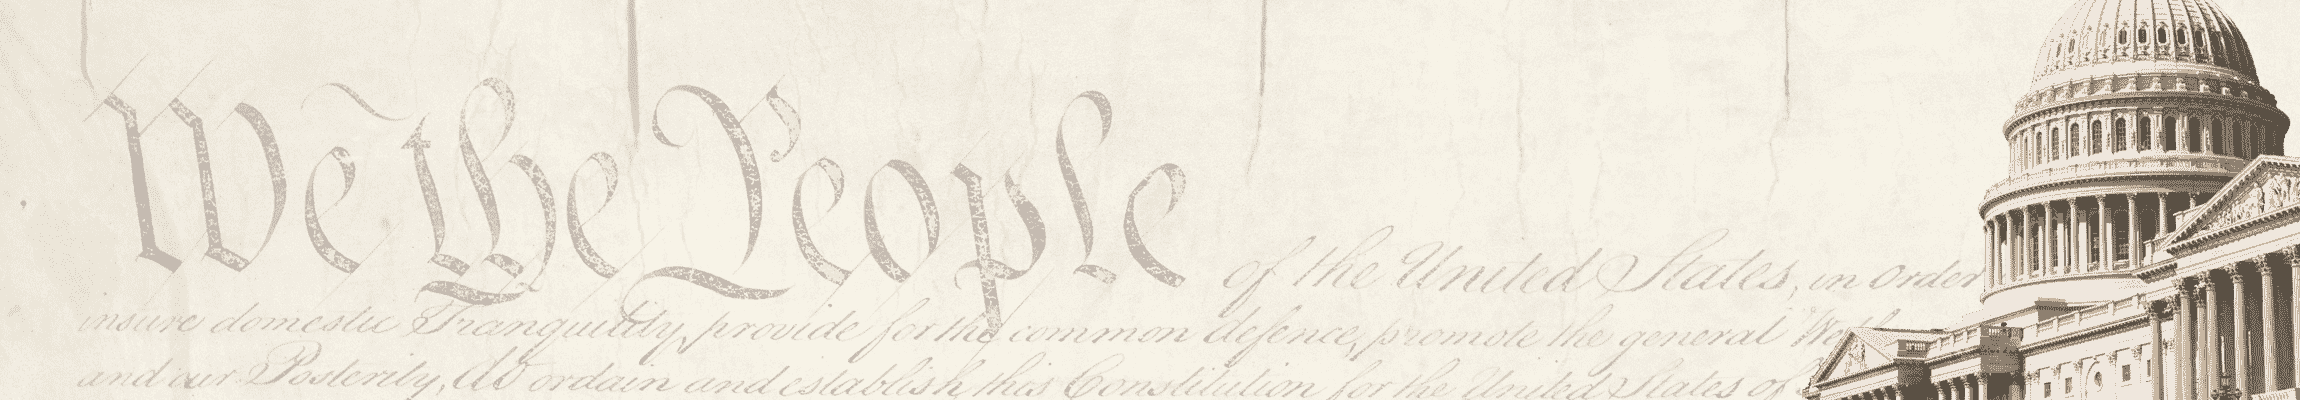 We the People of the United States, in Order
insure domestic Tranquility, provide for the common defence, promote the general Welf
and our Posterity, do ordain and establish this Constitution for the United States of